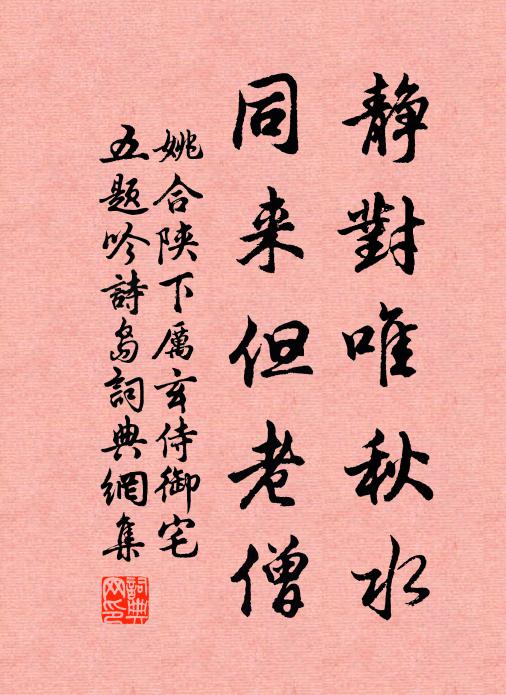 靜對唯秋水
同来但老僧
姚合陝下厲玄侍御宅
五題吟詩島詞典網集
詞典網印